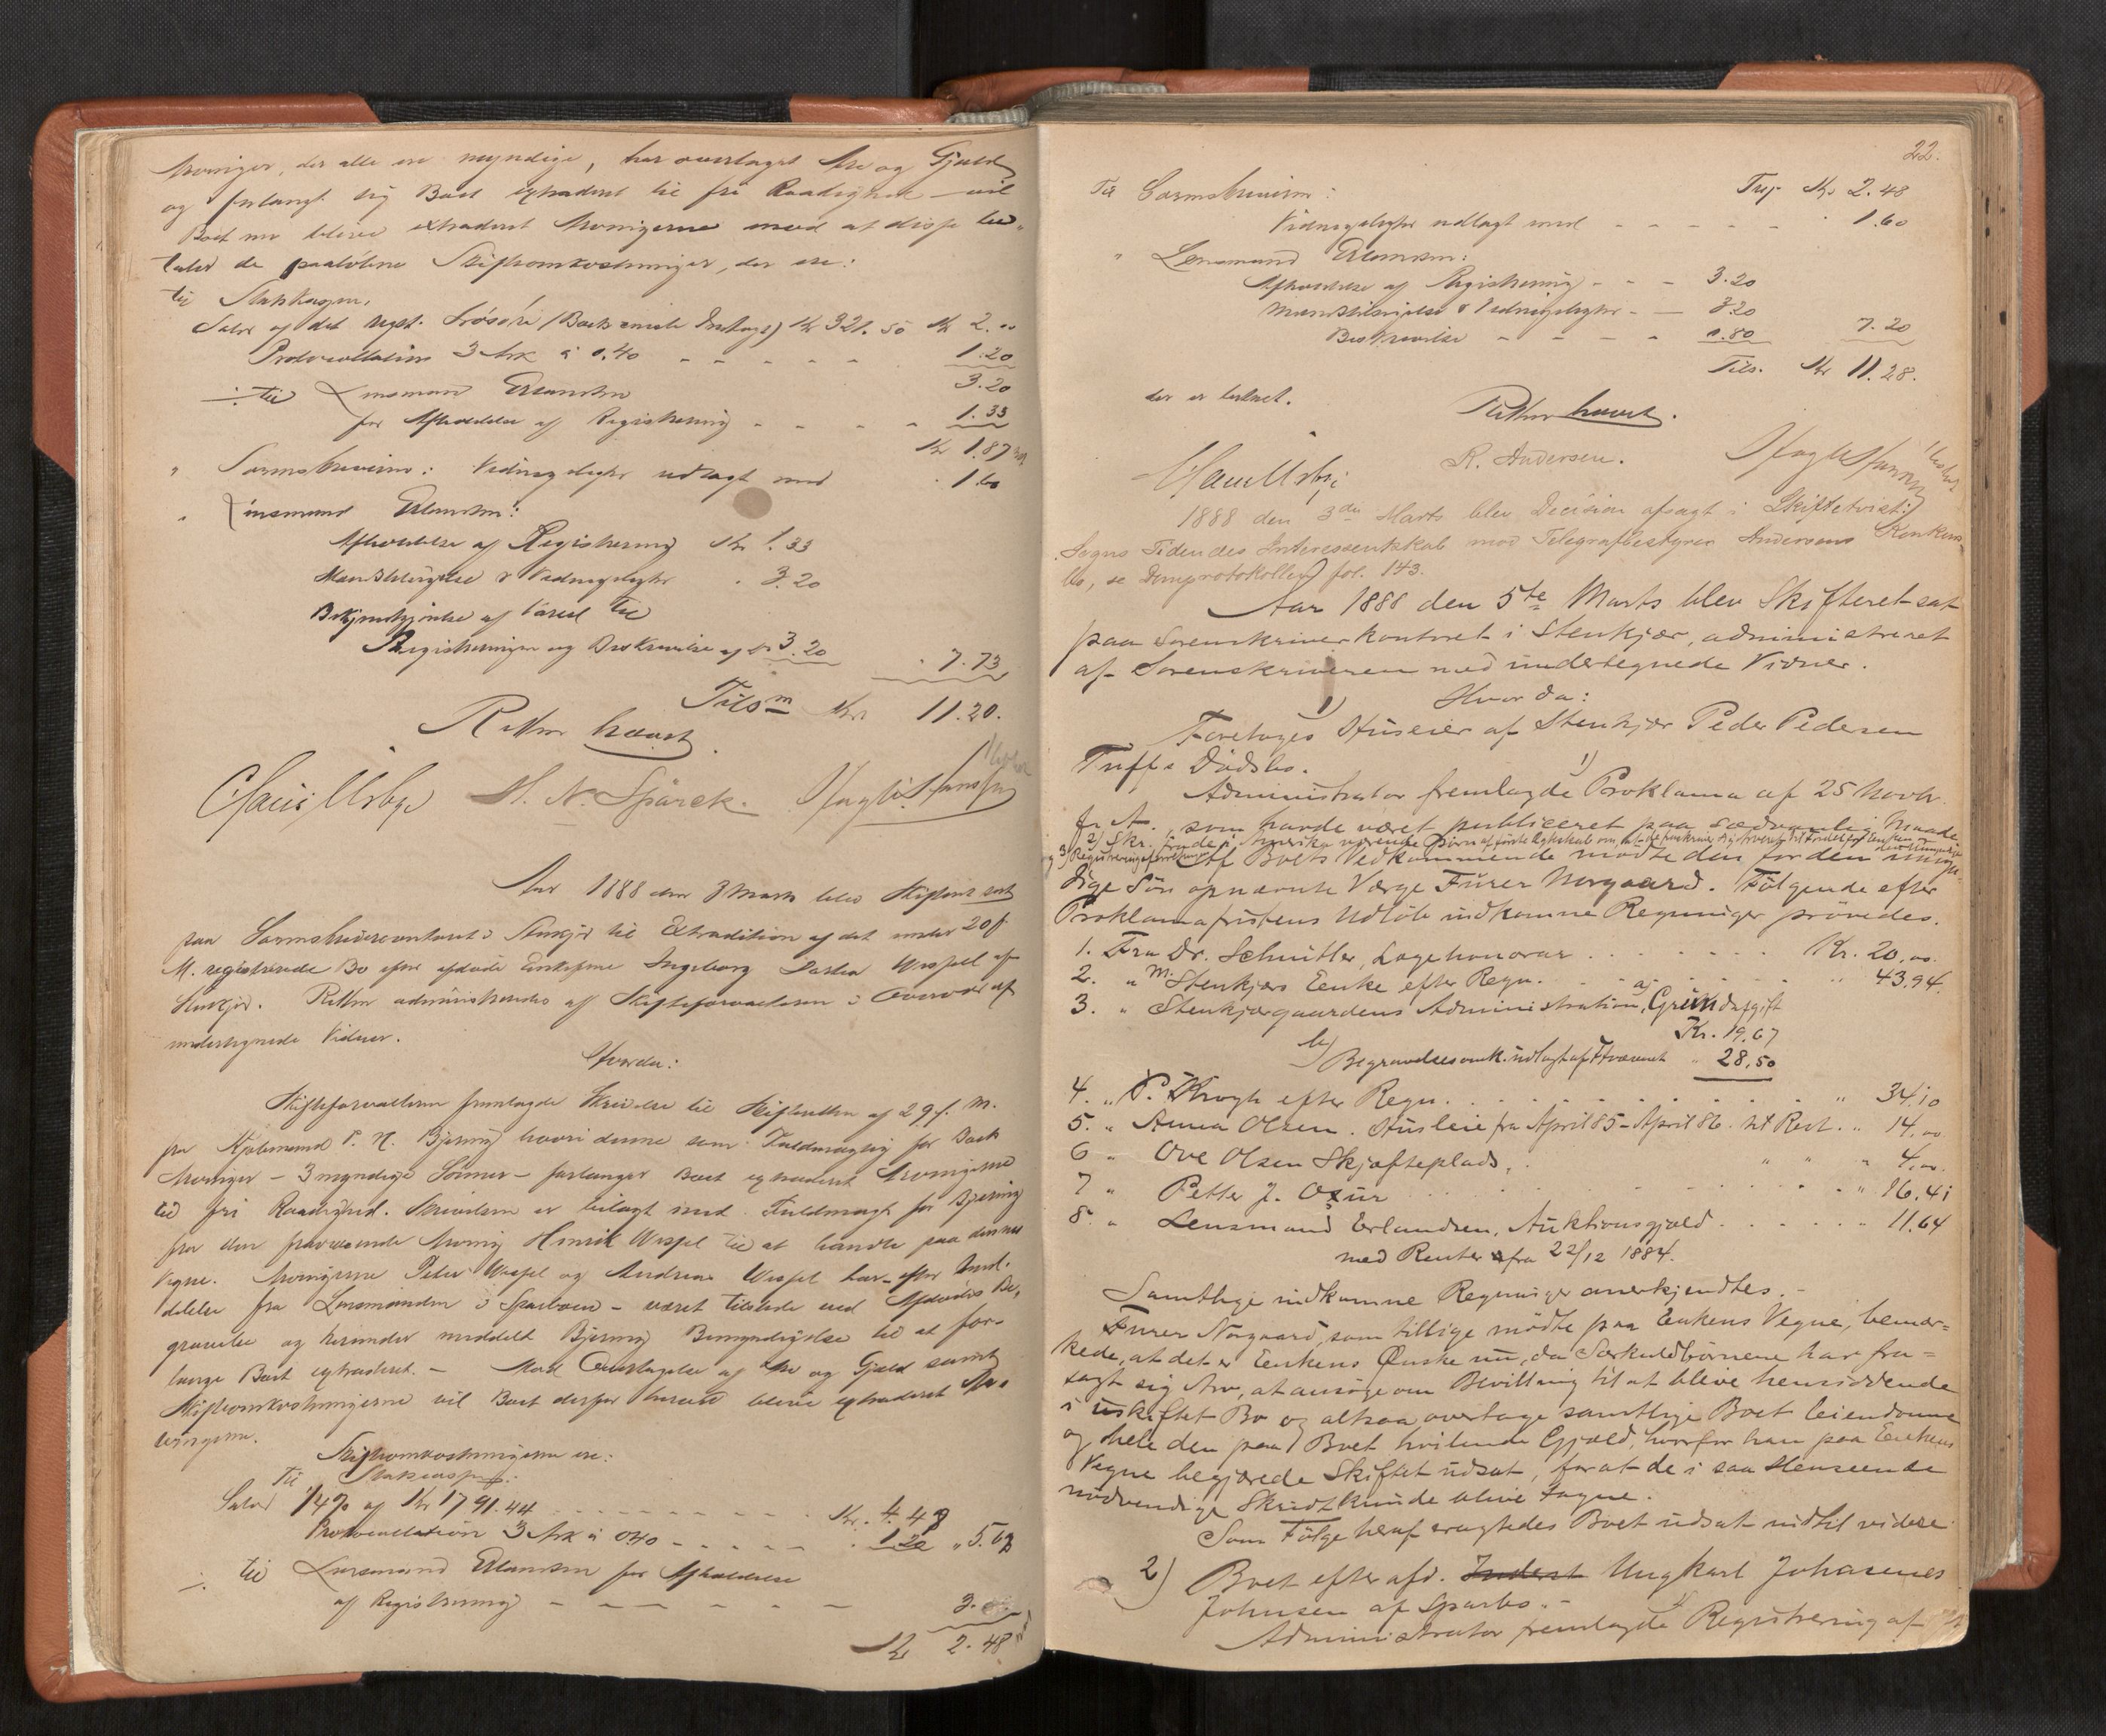 Arvinger, der alle ere myndige, har overtaget Arv og Gjæld
og forlangt sig Boet extraderet til fri Raadighed – vil
Boet nu blive extraderet Arvingerne mod at disse be-
taler de paaløbne Skifteomkostninger, der ere:
til Statskassen,
Salær af det regst. Løsøre (Boets eneste Indtægt) Kr 321.50 Kr 2.00
Protocollation 3 Ark à 0.40 - - - - - 1.20
3.20
÷ til Lensmand Erlandsen
for Afholdelse af Registrering - - - - 1.33
Kr 1.87
" Sorenskriveren: Vidnegodtgj. udlagt med 1.60
" Lensmand Erlandsen:
Afholdelse af Registrering Kr 1.33
Mandstilsigelse & Vidnegodtgj. " 3.20
Bekjendtgjørelse af Varsel til
Registreringen og Beskrivelse af do 3.20 " 7.73
Tilsm Kr 11.20.
Retten hævet.
Claus Urbye M. N. Spärck.
Aar 1888 den 3 Marts blev Skifteret sat
paa Sorenskrivercontoret i Stenkjær til Extradition af det under 20 f.
M. registrerede Bo efter afdøde Enkefrue Ingeborg Wessel af
Stenkjær. Retten administreredes af Skifteforvalteren i Overvær af
undertegnede Vidner.
Hvorda:
Skifteforvalteren fremlagde Skrivelse til Skifteretten af 29 f. M.
fra Kjøbmand P. N. Bjerring hvori denne som Fuldmægtig for Boets
Arvinger – 3 myndige Sønner – forlanger Boet extraderet Arvingerne
til fri Raadighed. Skrivelsen er bilagt med Fuldmagt for Bjerring
fra den fraværende Arving Henrik Wessel til at handle paa dennes
Vegne. Arvingerne Peter Wessel og Andreas Wessel har – efter Med-
delelse fra Lensmanden i Sparboen – været tilstede ved Afdødes Be-
gravelse og herunder meddelt Bjerring Bemyndigelse til at for-
lange Boet extraderet. – Mod Overtagelse af Arv og Gjæld samt
Skifteomkostningerne vil Boet derfor herved blive extraderet Ar-
vingerne.
Skifteomkostningerne ere:
Til Statskassen:
Salær 1/4% af Kr 1791.44 - - - - - - - - Kr. 4.48
Protocollation 3 Ark à 0.40 - - - - - " 1.20 " 5.68
÷ til Lensmand Erlandsen for Afholdelse
af Registrering - - - - - - 3.
Kr 2.48
22.
Trsp. Kr 2.48
Til Sorenskriveren:
Vidnegodtgj. udlagt med - - - - - " 1.60
" Lensmand Erlandsen:
Afholdelse af Registrering - - - 3.20
Mandstilsigelse & Vidnegodtgj. - - 3.20
Beskrivelse - - - - 0.80 7.20
Tils. Kr 11.28.
der er betalt.
Retten hævet.
Claus Urbye R. Andersen.
1888 den 3die Marts blev Decision afsagt i Skiftetvist:
Sogns Tidendes Interessentskab mod Telegrafbestyrer Andersens Konkurs-
bo, se Domprotokollen fol. 143.
Aar 1888 den 5te Marts blev Skifteret sat
paa Sorenskriverkontoret i Stenkjær, administreret
af Sorenskriveren med undertegnede Vidner.
Hvorda:
1)
Foretoges Huseier af Stenkjær Peder Pedersen
Tufts Dødsbo.
1)
Administrator fremlagde Proklama af 25 Novbr.
f. A., som havde været publiceret paa sædvanlig Maade
2) Skr. fra de i Amerika værende Børn af første Ægteskab om, at de fraskriver sig Arveret til Fordel for Enken
og 3) Registreringsforretningen
Af Boets Vedkommende mødte den for den umyn-
dige Søn opnævnte Værge Furer Norgaard. Følgende efter
Proklamafristens Udløb indkomne Regninger prøvedes.
1. Fra Dr. Schnitler, Lægehonorar . . . . . . Kr. 20,00.
2. " M. Stenkjærs Enke efter Regn. . . . . . " 43.94.
3. " Stenkjærgaardens Administration, a) Grundafgift
Kr. 19.67
b) Begravelsesomk. udlagt af Fattigvæsenet " 28,50
4. " P. Krogh efter Regn. . . . . . . . . . " 34.10
5. " Anna Olsen. Husleie fra April 85 – April 86. Rest. " 14,00
6 " Ove Olsen Skjefteplads, . " " " 4,00.
7 " Petter J. Oxur . . . . . . . . . . " 16.41
8. " Lensmand Erlandsen, Auktionsgjæld . . . . . . " 11.64
med Renter fra 22/12 1884.
Samtlige indkomne Regninger anerkjendtes. -
Furer Norgaard, som tillige mødte paa Enkens Vegne, bemær-
kede, at det er Enkens Ønske nu, da Særkuldbørnene har fra-
sagt sig Arv, at ansøge om Bevilling til at blive hensiddende
i uskiftet Bo og altsaa overtage samtlige Boets Eiendomme
og hele den paa Boet hvilende Gjæld, hvorfor han paa Enkens
Vegne begjærede Skiftet udsat, for at de i saa Henseende
nødvendige Skridt kunde blive tagne.
Som Følge heraf eragtedes Boet udsat indtil videre
2) Boet efter afd. Inderst Ungkarl Johannes
Johnsen af Sparbo. -
Administrator fremlagde Registrering af